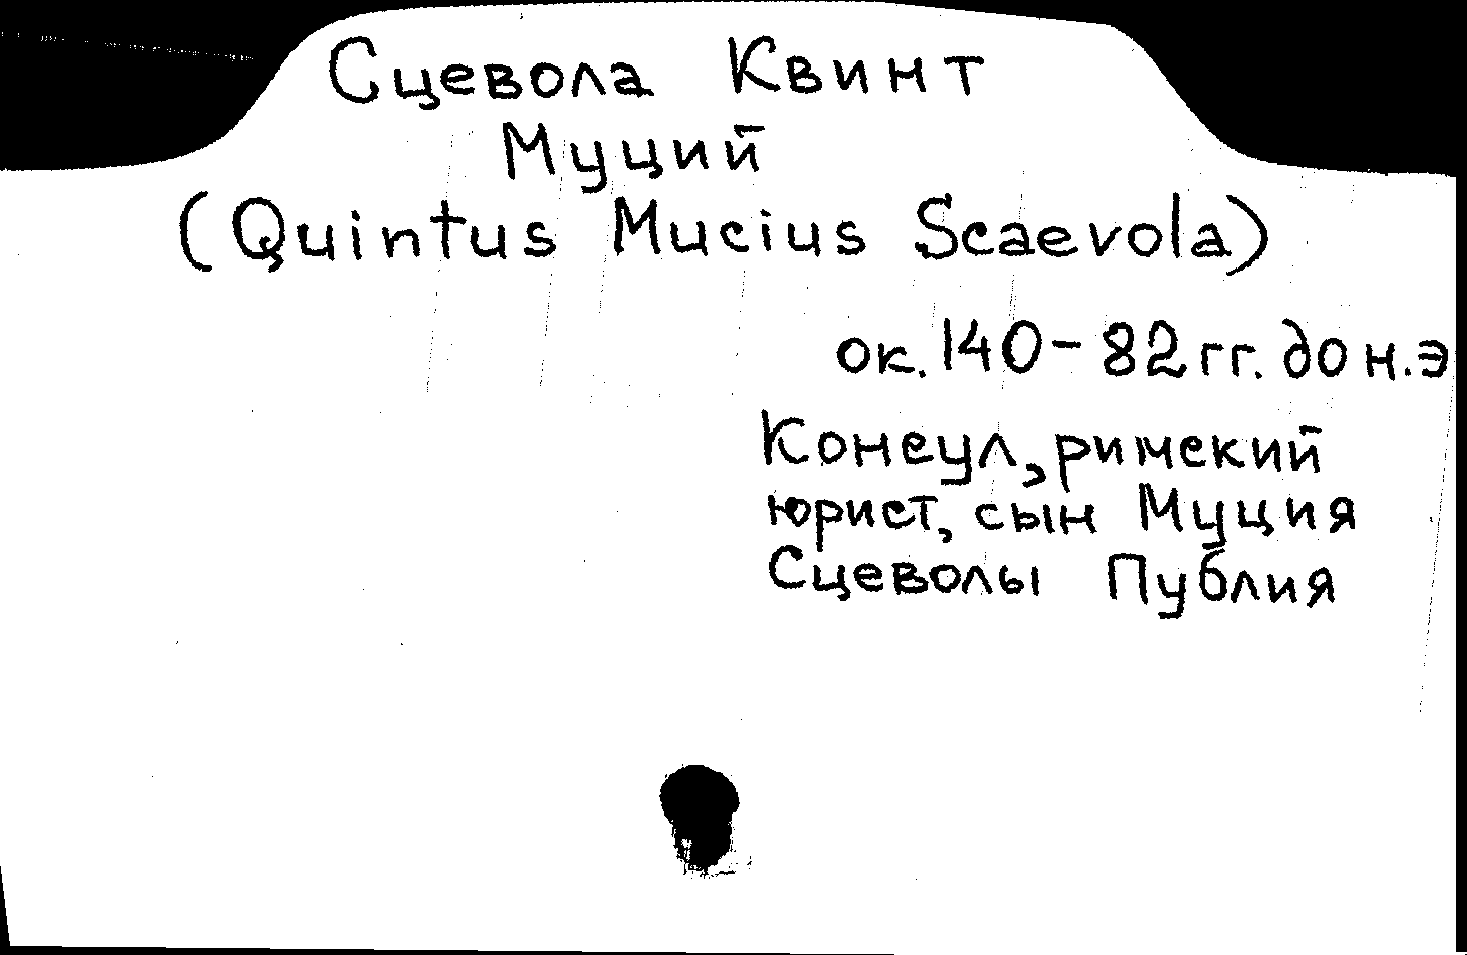 Сцевола Квинт
Муций
(Quintus Mucius Scaevola)
ок. 140-82 гг. до н.э
Консул, римский
юрист, сын Муция
Сцеволы Публия